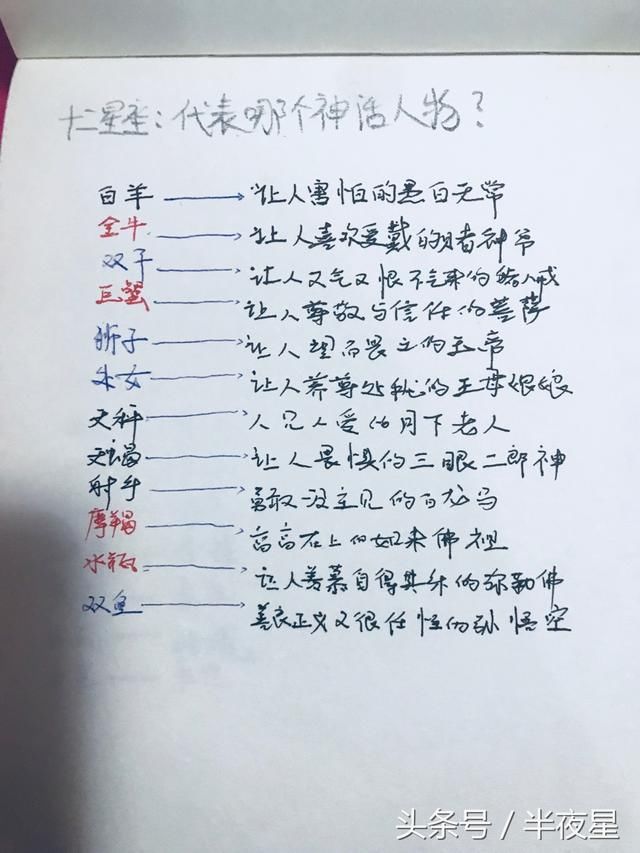 十二星座：代表哪个神话人物？
白羊 让人害怕的黑白无常
金牛 让人喜欢受戴的财神爷
双子 让人又气又恨不起来的猪八戒
巨蟹 让人尊敬与信任的菩萨
狮子 让人望而畏之的玉帝
处女 让人养尊处优的王母娘娘
天秤 人见人爱的月下老人
天蝎 让人畏惧的三眼二郎神
射手 勇敢没主见的白龙马
摩羯 高高在上的如来佛祖
水瓶 让人羡慕自得其乐的弥勒佛
双鱼 善良正义又很任性的孙悟空
头条号／半夜星